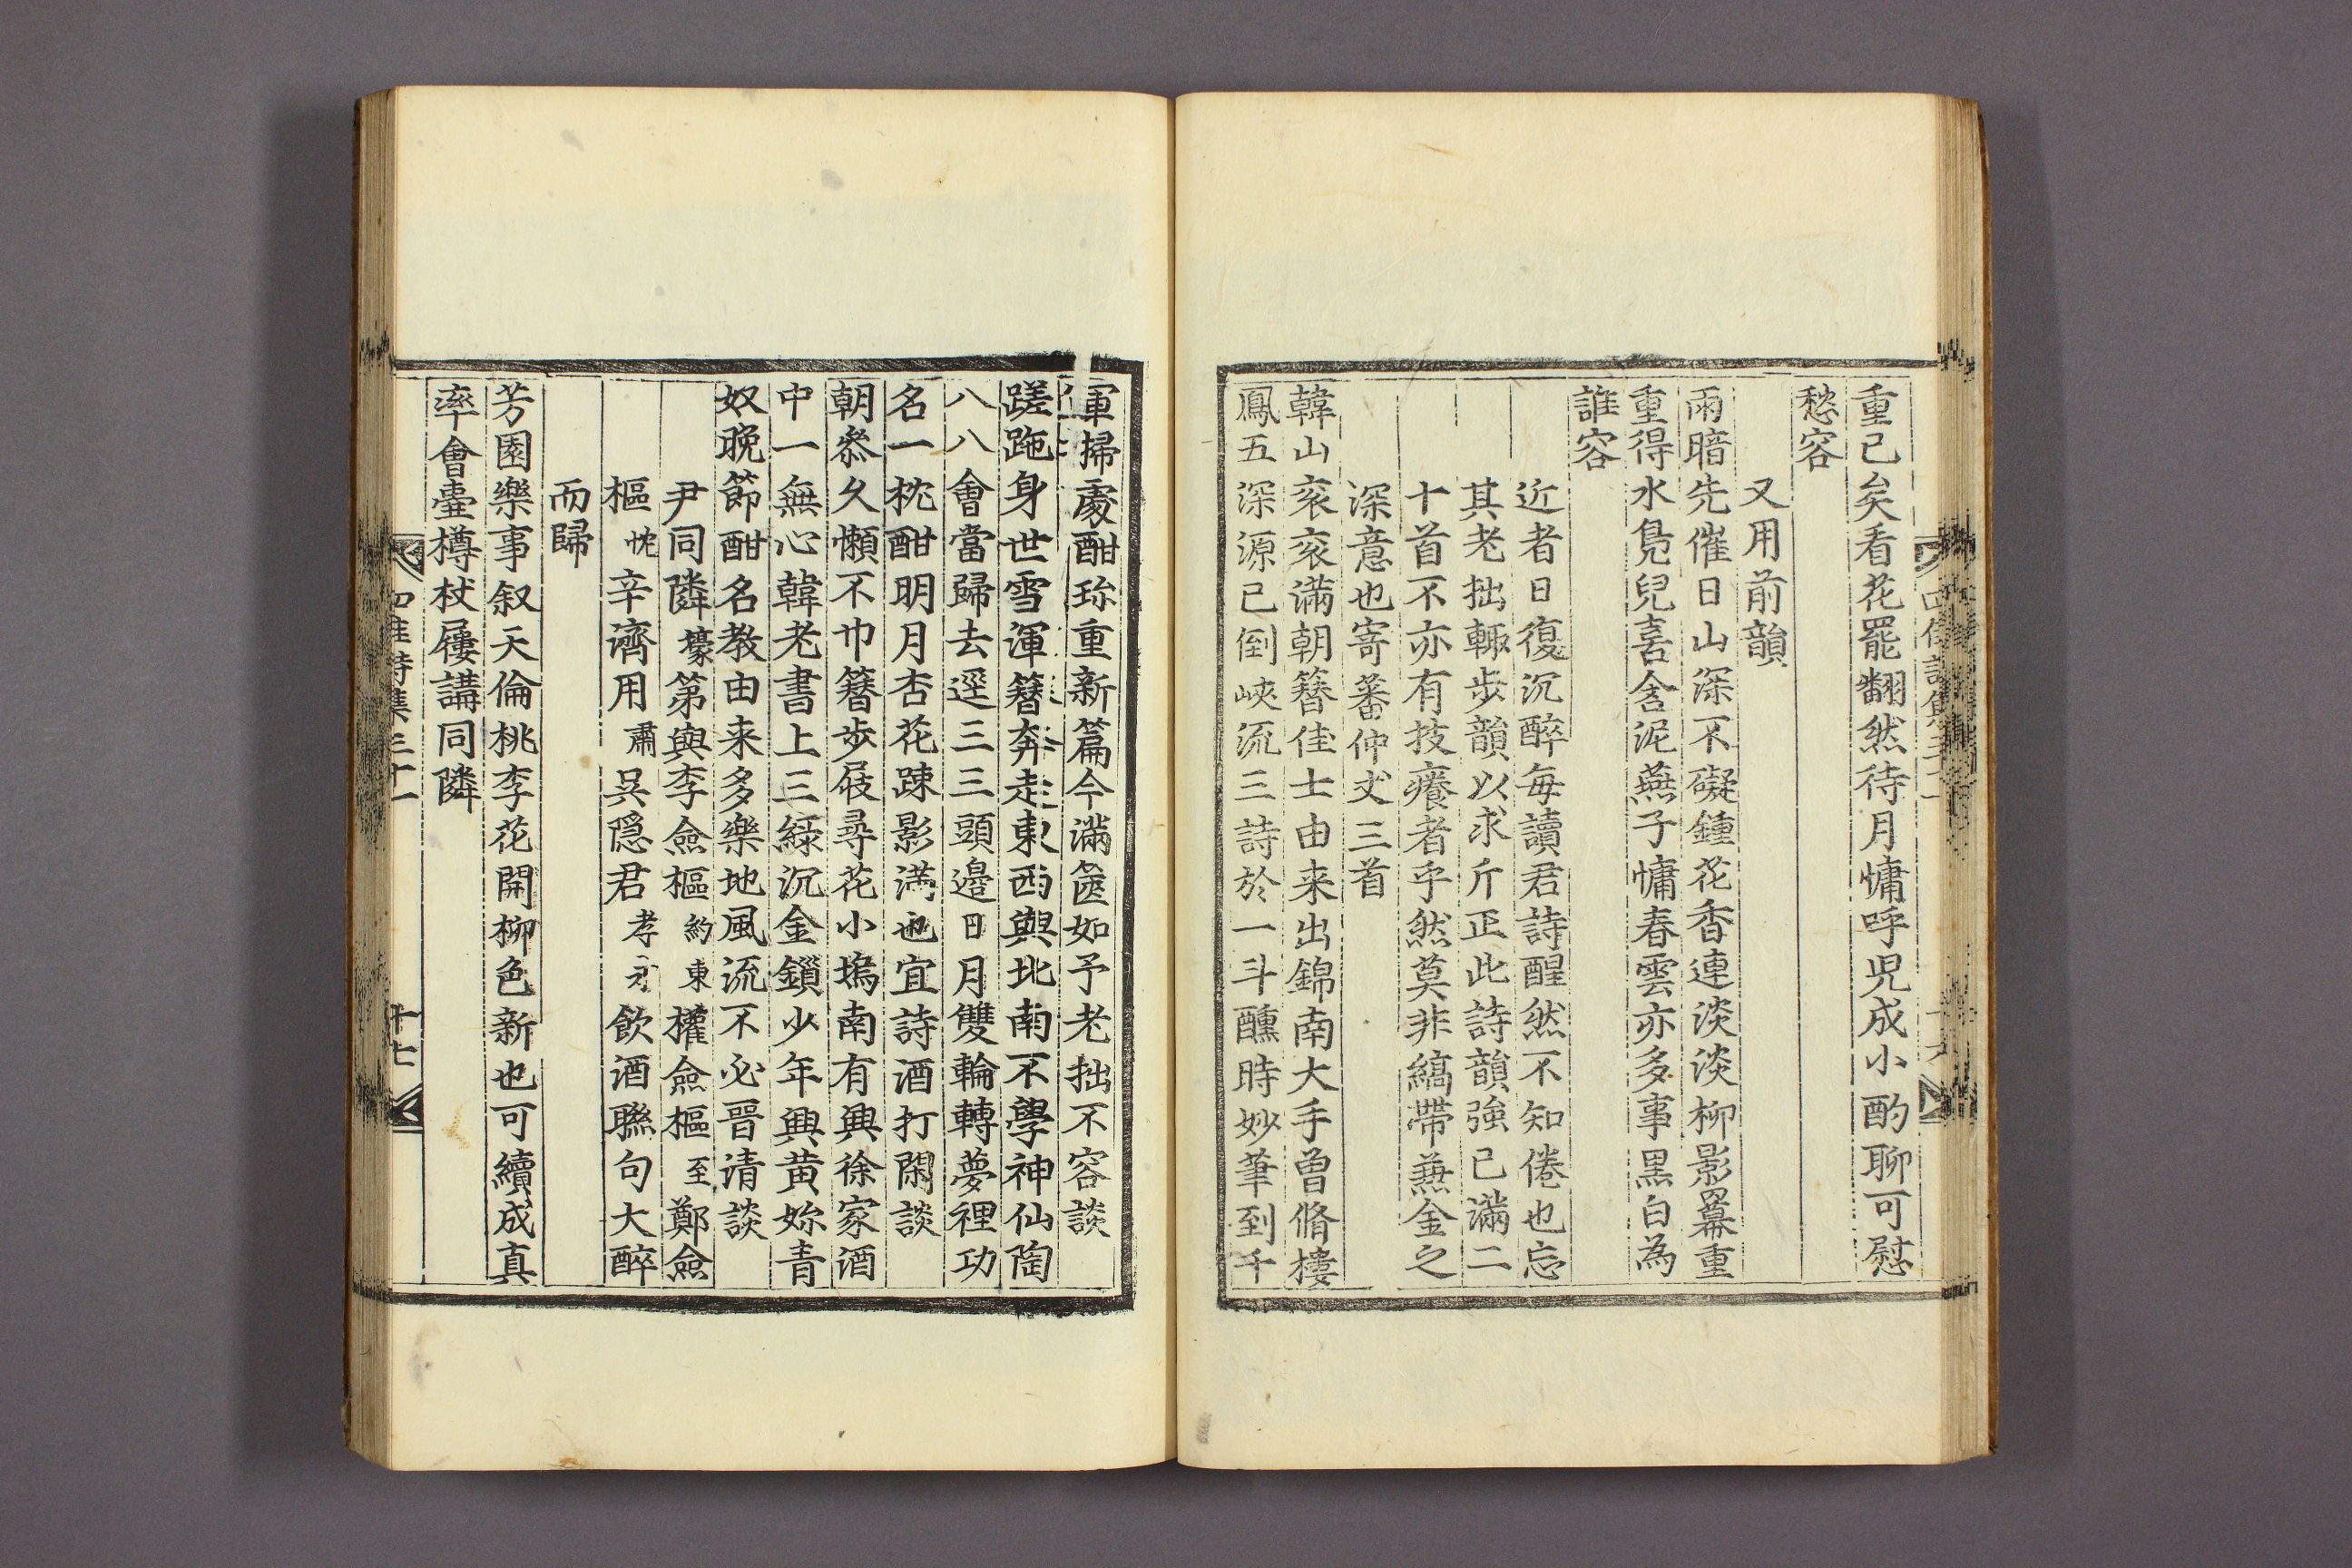 重已矣看花罷翻然待月慵呼児成小酌聊可慰
愁容
又用前韻
雨暗先催日山深不礙鍾花香連淡淡柳影羃重
重得水鳧兒喜含泥燕子慵春雲亦多事黒白為
誰容
近者日復沉醉每讀君詩醒然不知倦也忘
其老拙輙步韻以求斤正此詩韻強已滿二
十首不亦有技癢者乎然莫非縞帶蕪金之
深意也寄蕃仲丈三首
韓山衮衮滿朝簪佳士由来出錦南大手曽脩樓
鳳五深源已倒峽流三詩於一斗醺時妙筆到千
軍掃處酣珎重新篇今滿篋如予老拙不容談
蹉跎身世雪渾簪奔走東西與北南不學神仙陶
八八會當歸去逕三三頭邊日月雙輪轉夢裡功
名一枕酣明月杏花踈影満也宜詩酒打閑談
朝叅久懶不巾簪步屐尋花小塢南有興徐家酒
中一無心韓老書上三緑沉金鎻少年興黄妳青
奴晩節酣名教由来多樂地風流不必晋清談
尹同隣壕第與李僉樞約東權僉樞至鄭僉
樞忱辛濟用肅吳隠君孝永飲酒聯句大醉
而歸
芳園樂事叙天倫桃李花開柳色新也可續成真
率會臺樽杖屨講同隣
四佳詩集三十一
十七